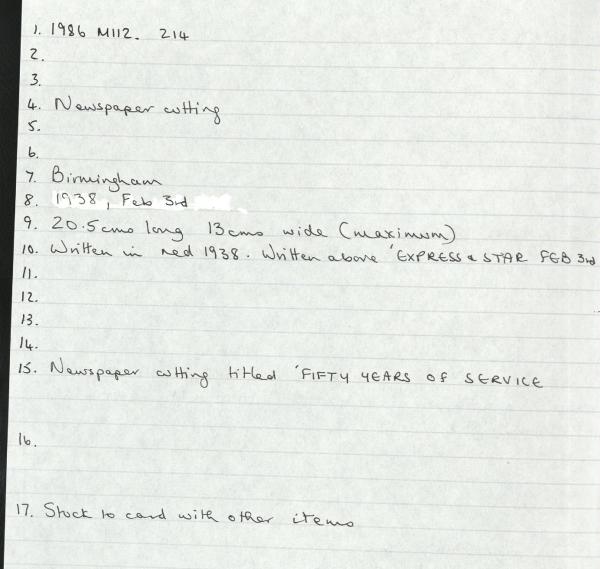 1. 1986 M112. 214
2.
3.
4. Newspaper cutting
5.
6.
7. Birmingham
8. 1938, Feb 3rd
9. 20.5cms long 13cms wide (maximum)
10. Written in red 1938. Written above 'EXPRESS & STAR FEB 3rd
11.
12.
13.
14.
15. Newspaper cutting titled 'FIFTY YEARS OF SERVICE
16.
17. Stuck to card with other items